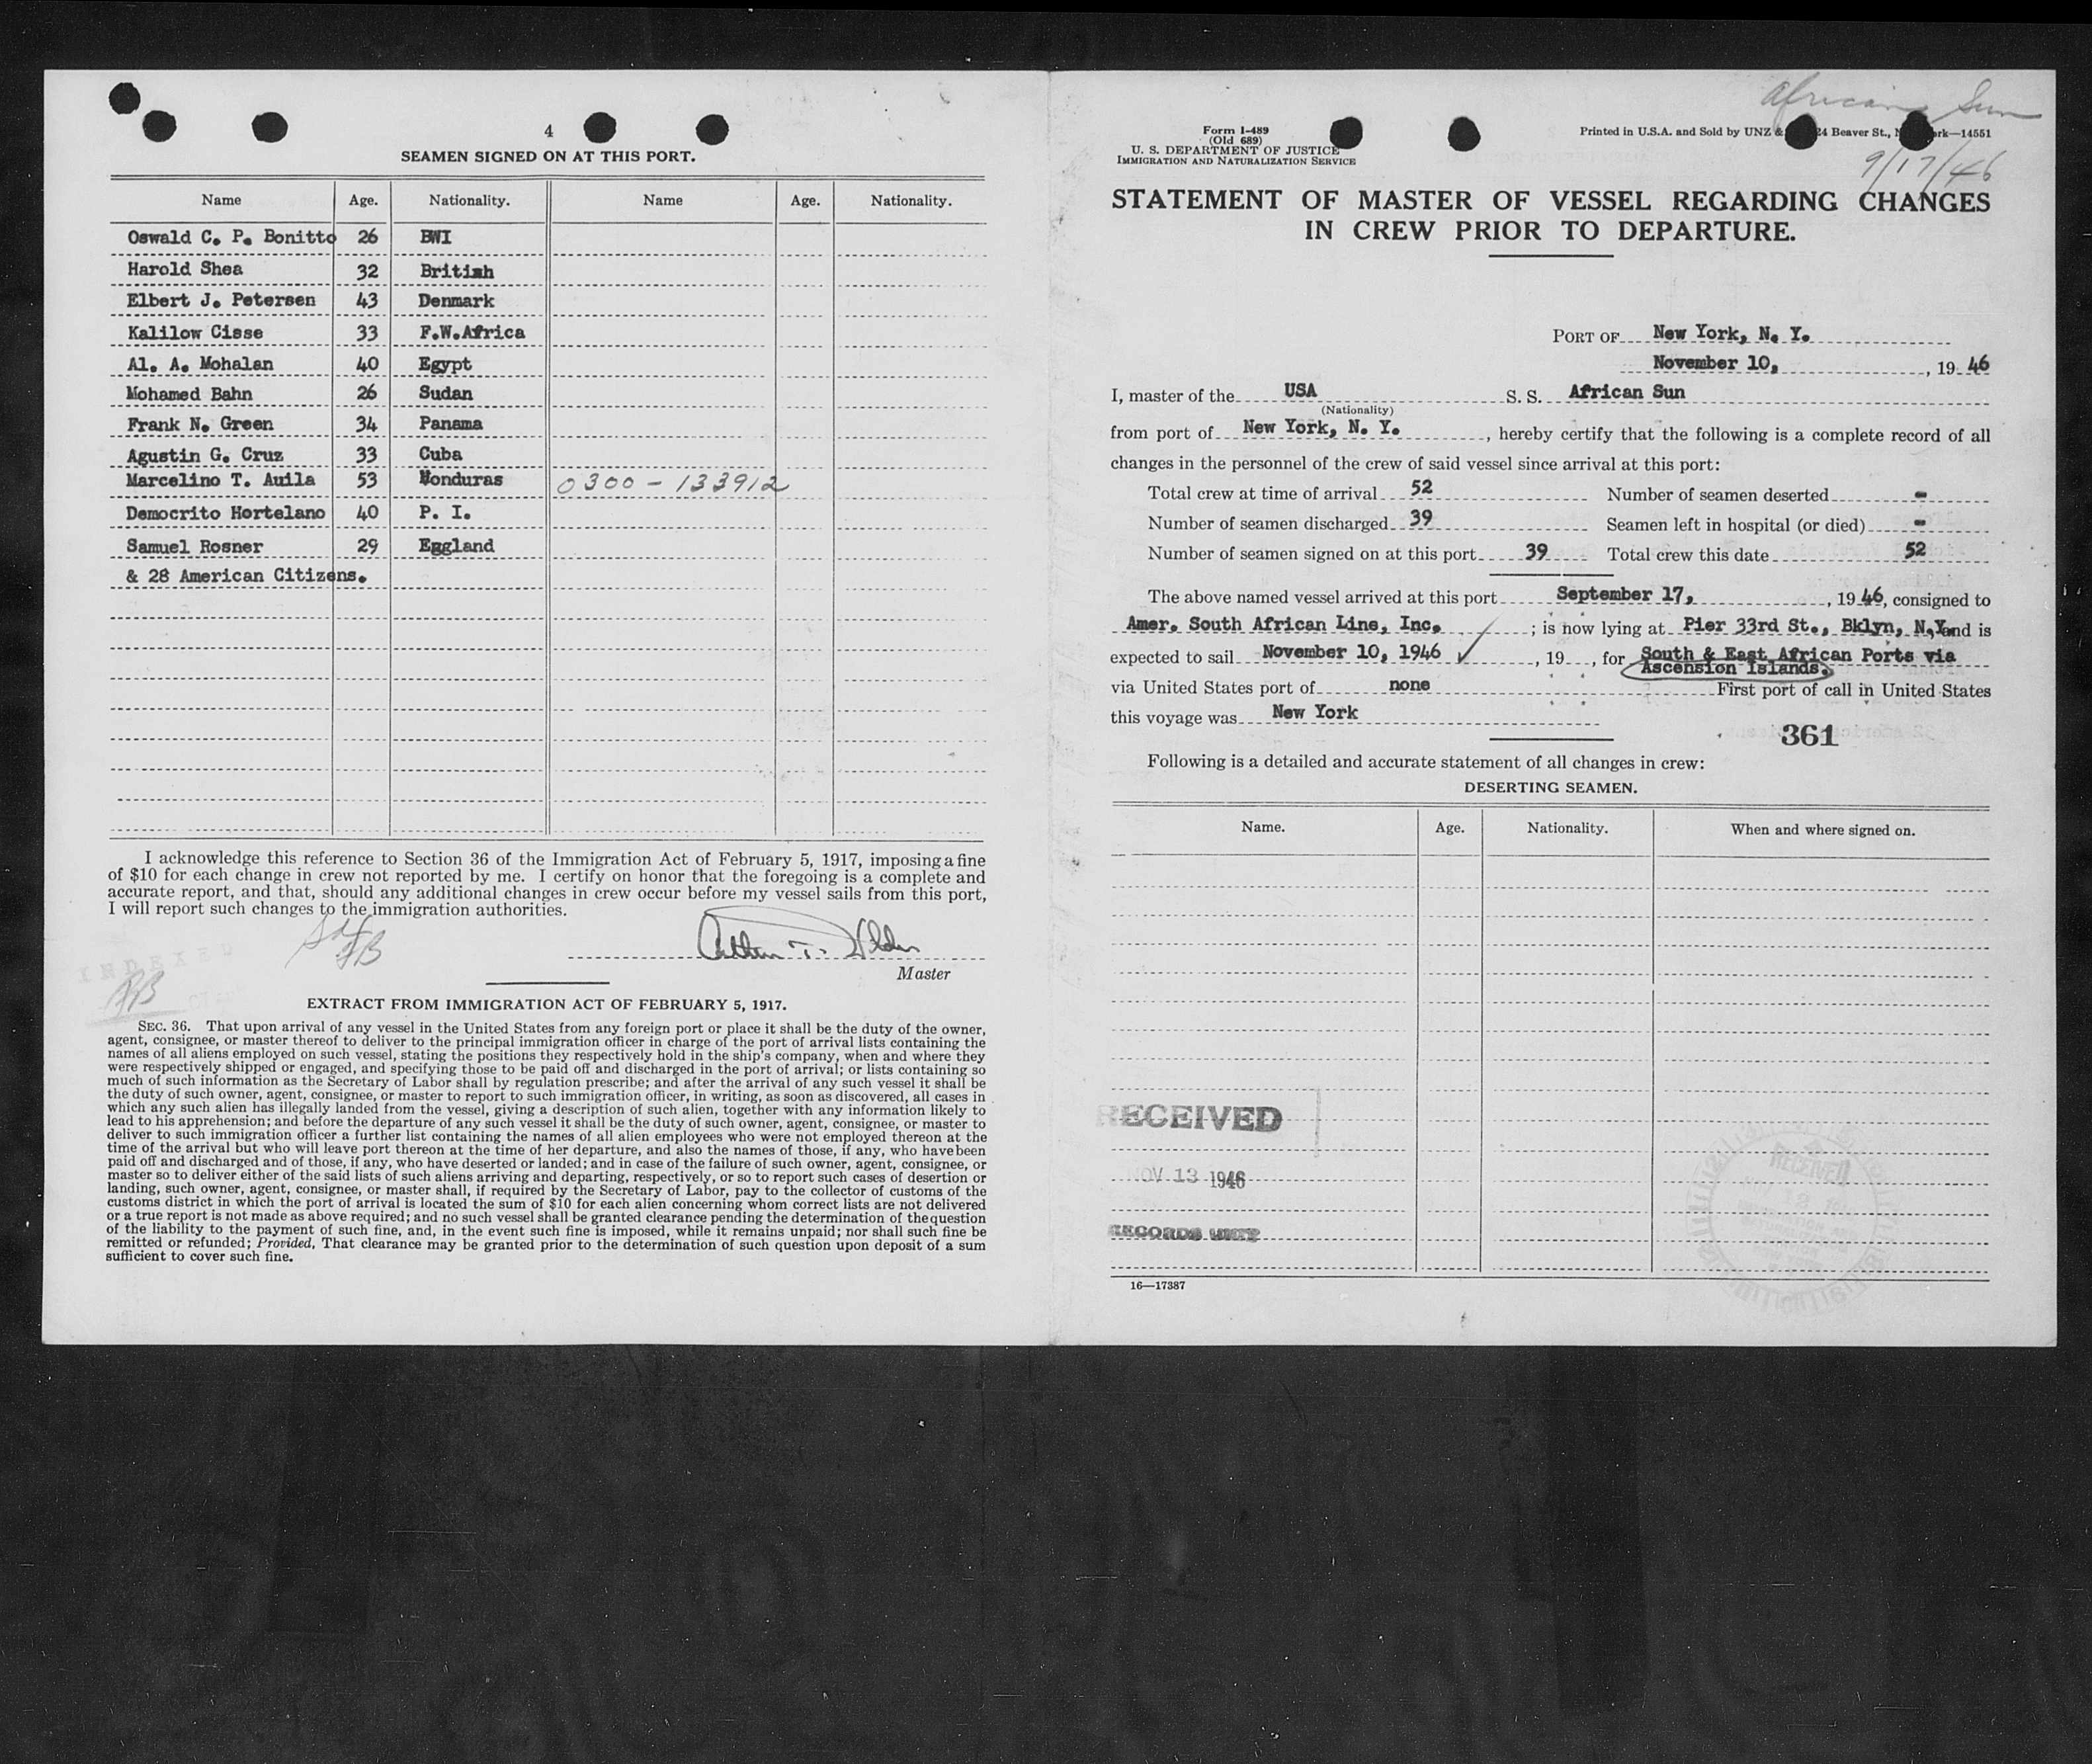 4
SEAMEN SIGNED ON AT THIS PORT.
Name Age. Nationality. Name Age. Nationality.
Oswald C. P. Bonitto 26 BWI
Harold Shea 32 British
Elbert J. Petersen 43 Denmark
Kalilow Cisse 33 F.W.Africa
Al. A. Mohalan 40 Egypt
Mohamed Bahn 26 Sudan
Frank N. Green 34 Panama
Agustin G. Cruz 33 Cuba
Marcelino T. Auila 53 Honduras 0300-133912
Democrito Hortelano 40 P. I.
Samuel Rosner 29 Eggland
& 28 American Citizens.
I acknowledge this reference to Section 36 of the Immigration Act of February 5, 1917, imposing a fine
of $10 for each change in crew not reported by me. I certify on honor that the foregoing is a complete and
accurate report, and that, should any additional changes in crew occur before my vessel sails from this port,
I will report such changes to the immigration authorities.
INDEXED
Master
EXTRACT FROM IMMIGRATION ACT OF FEBRUARY 5, 1917.
SEC. 36. That upon arrival of any vessel in the United States from any foreign port or place it shall be the duty of the owner,
agent, consignee, or master thereof to deliver to the principal immigration officer in charge of the port of arrival lists containing the
names of all aliens employed on such vessel, stating the positions they respectively hold in the ship's company, when and where they
were respectively shipped or engaged, and specifying those to be paid off and discharged in the port of arrival; or lists containing so
much of such information as the Secretary of Labor shall by regulation prescribe; and after the arrival of any such vessel it shall be
the duty of such owner, agent, consignee, or master to report to such immigration officer, in writing, as soon as discovered, all cases in
which any such alien has illegally landed from the vessel, giving a description of such alien, together with any information likely to
lead to his apprehension; and before the departure of any such vessel it shall be the duty of such owner, agent, consignee, or master to
deliver to such immigration officer a further list containing the names of all alien employees who were not employed thereon at the
time of the arrival but who will leave port thereon at the time of her departure, and also the names of those, if any, who have been
paid off and discharged and of those, if any, who have deserted or landed; and in case of the failure of such owner, agent, consignee, or
master so to deliver either of the said lists of such aliens arriving and departing, respectively, or so to report such cases of desertion or
landing, such owner, agent, consignee, or master shall, if required by the Secretary of Labor, pay to the collector of customs of the
customs district in which the port of arrival is located the sum of $10 for each alien concerning whom correct lists are not delivered
or a true report is not made as above required; and no such vessel shall be granted clearance pending the determination of the question
of the liability to the payment of such fine, and, in the event such fine is imposed, while it remains unpaid; nor shall such fine be
remitted or refunded; Provided, That clearance may be granted prior to the determination of such question upon deposit of a sum
sufficient to cover such fine.
African Sun
9/17/46
Form I-489
(Old 689)
U. S. DEPARTMENT OF JUSTICE
IMMIGRATION AND NATURALIZATION SERVICE
Printed in U.S.A. and Sold by UNZ & 24 Beaver St., N ork—14551
STATEMENT OF MASTER OF VESSEL REGARDING CHANGES
IN CREW PRIOR TO DEPARTURE.
PORT OF New York, N. Y.
November 10, , 19 46
I, master of the USA S. S. African Sun
(Nationality)
from port of New York, N. Y. , hereby certify that the following is a complete record of all
changes in the personnel of the crew of said vessel since arrival at this port:
Total crew at time of arrival 52 Number of seamen deserted -
Number of seamen discharged 39 Seamen left in hospital (or died) -
Number of seamen signed on at this port 39 Total crew this date 52
The above named vessel arrived at this port September 17, , 19 46, consigned to
Amer. South African Line, Inc. ; is now lying at Pier 33rd St., Bklyn, N,Y and is
expected to sail November 10, 1946 , 19 , for South & East African Ports via
Ascension Islands.
via United States port of none First port of call in United States
this voyage was New York
361
Following is a detailed and accurate statement of all changes in crew:
DESERTING SEAMEN.
Name. Age. Nationality. When and where signed on.
RECEIVED
NOV 13 1946
RECORDS UNIT
RECEIVED
16—17387